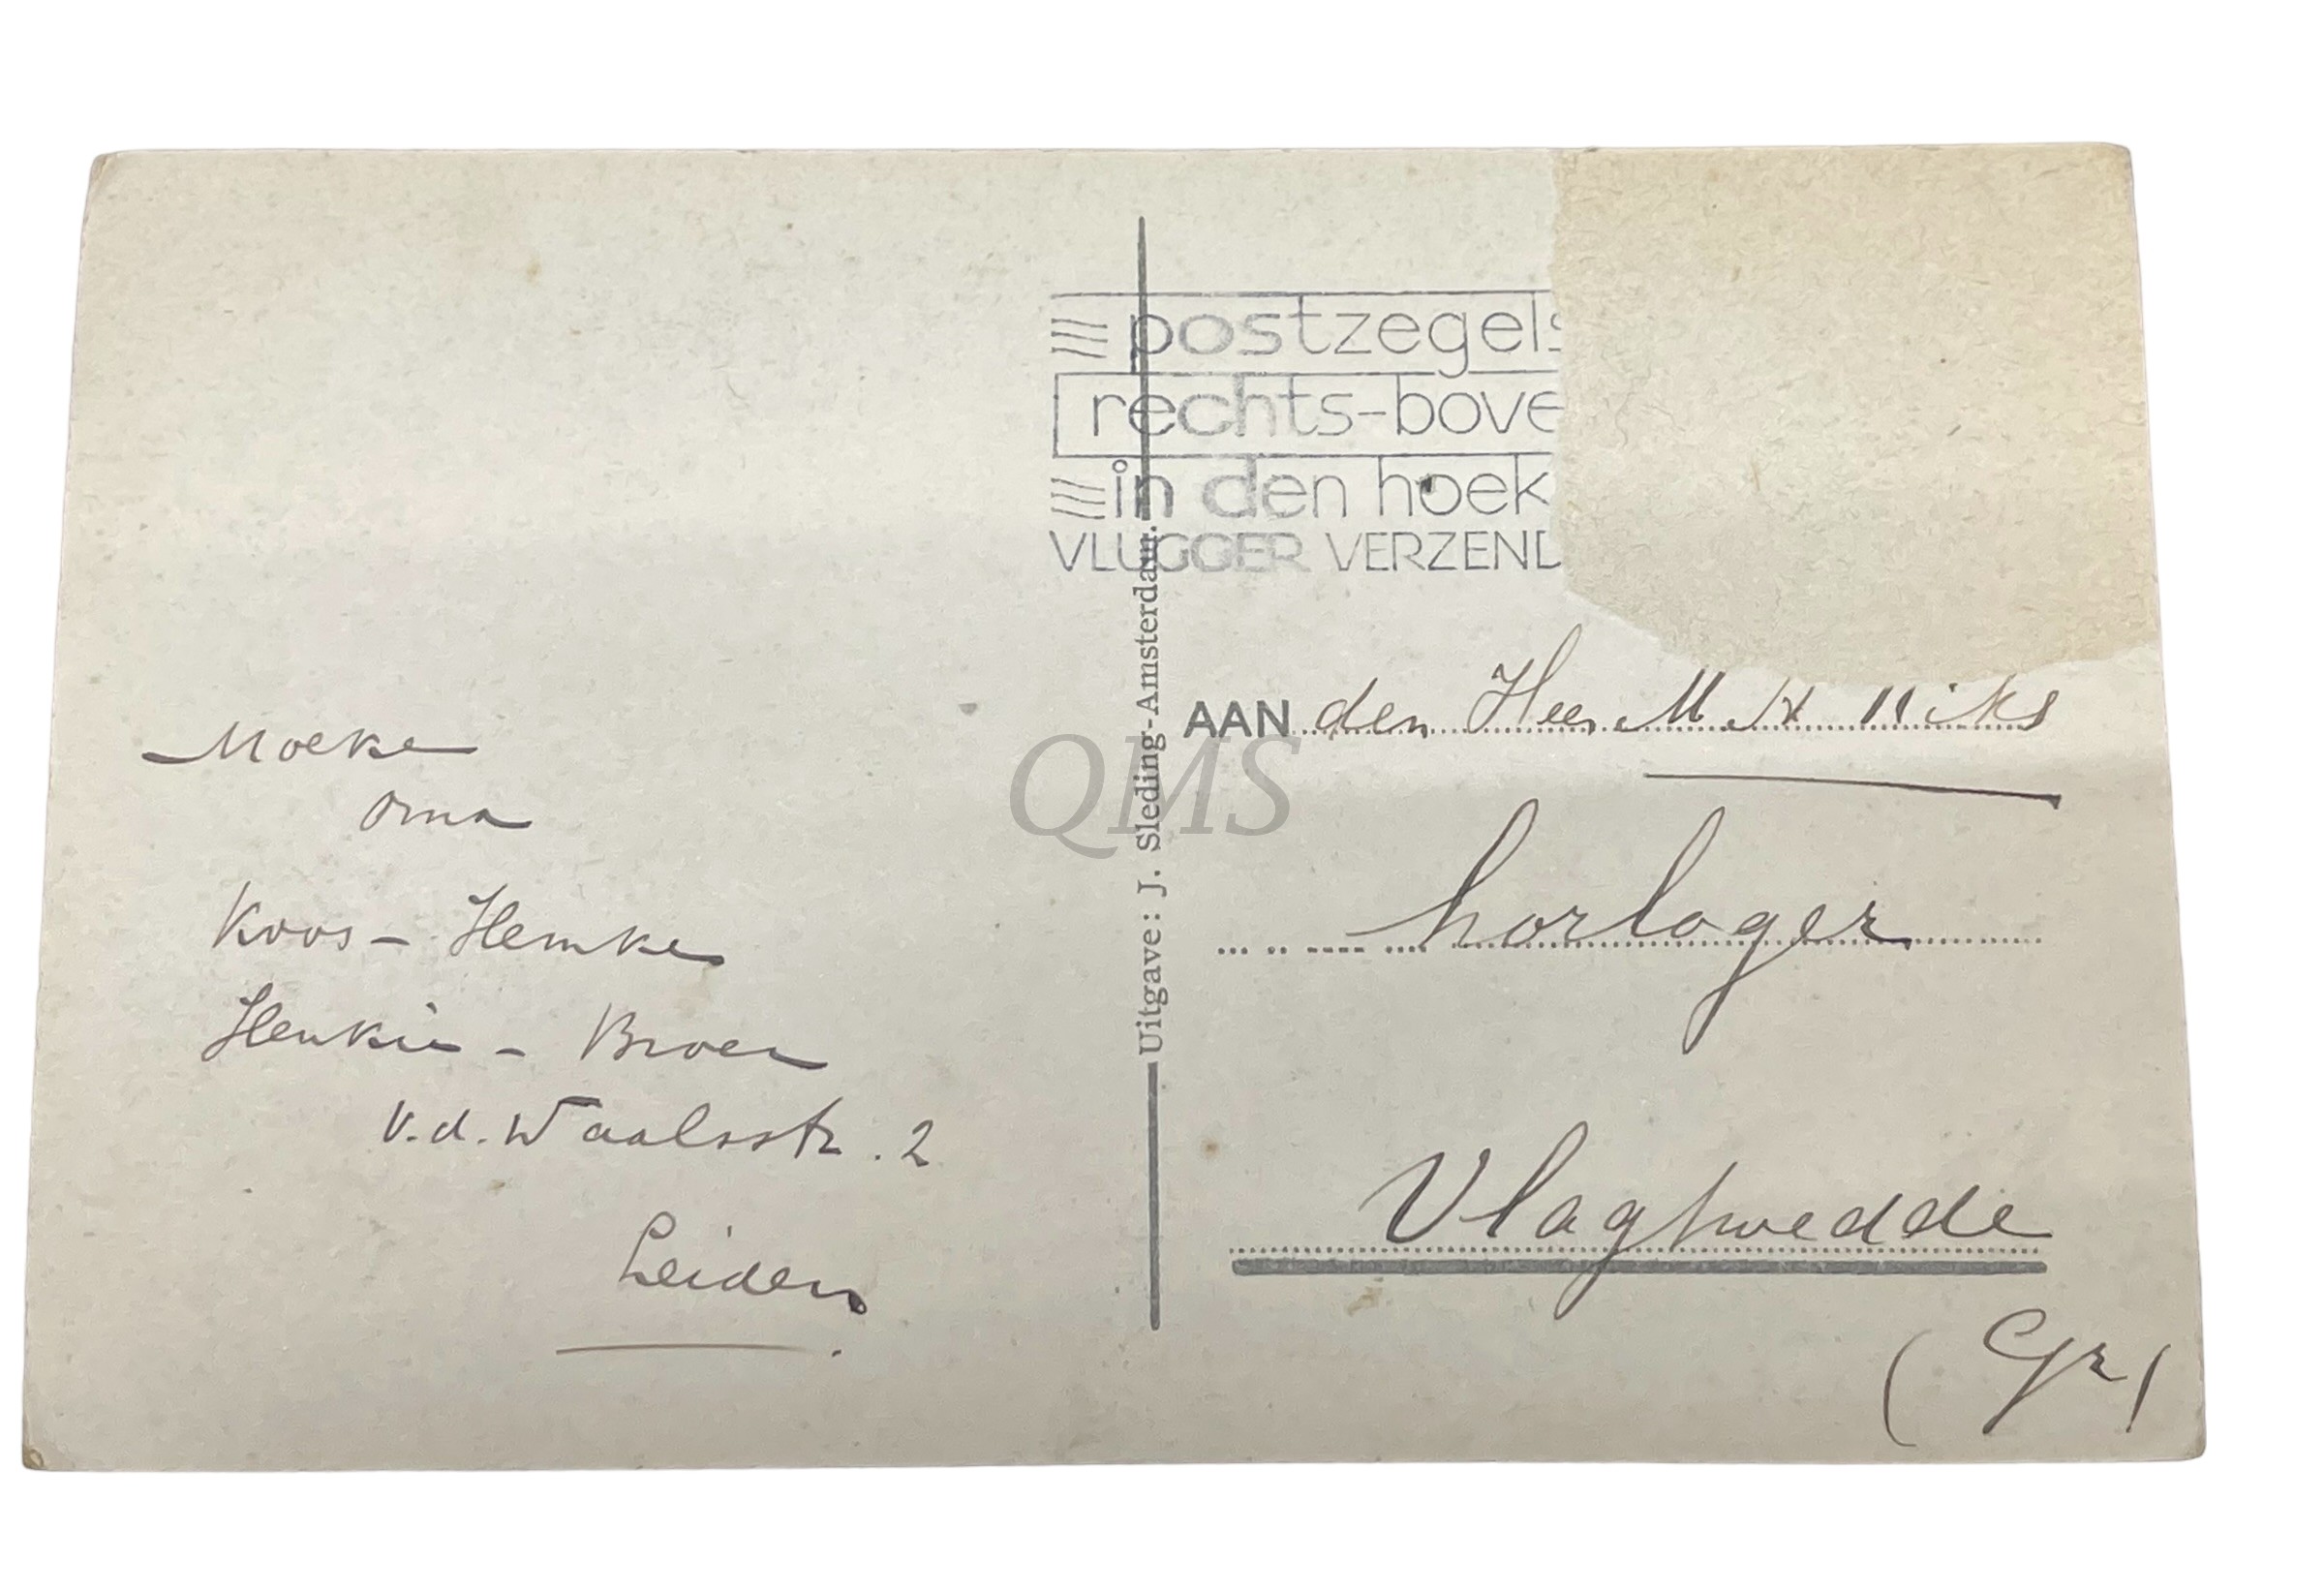 postzegels
rechts-bove
in den hoek
VLUGGER VERZEND
Moeke
Oma
Koos - Hemke
Henkie - Broer
v.d. Waalsstr. 2
Leiden
Uitgave: J. Sleding-Amsterdam.
QMS
AAN den Heer M. H
horloger
Vlagtwedde
(Gr)